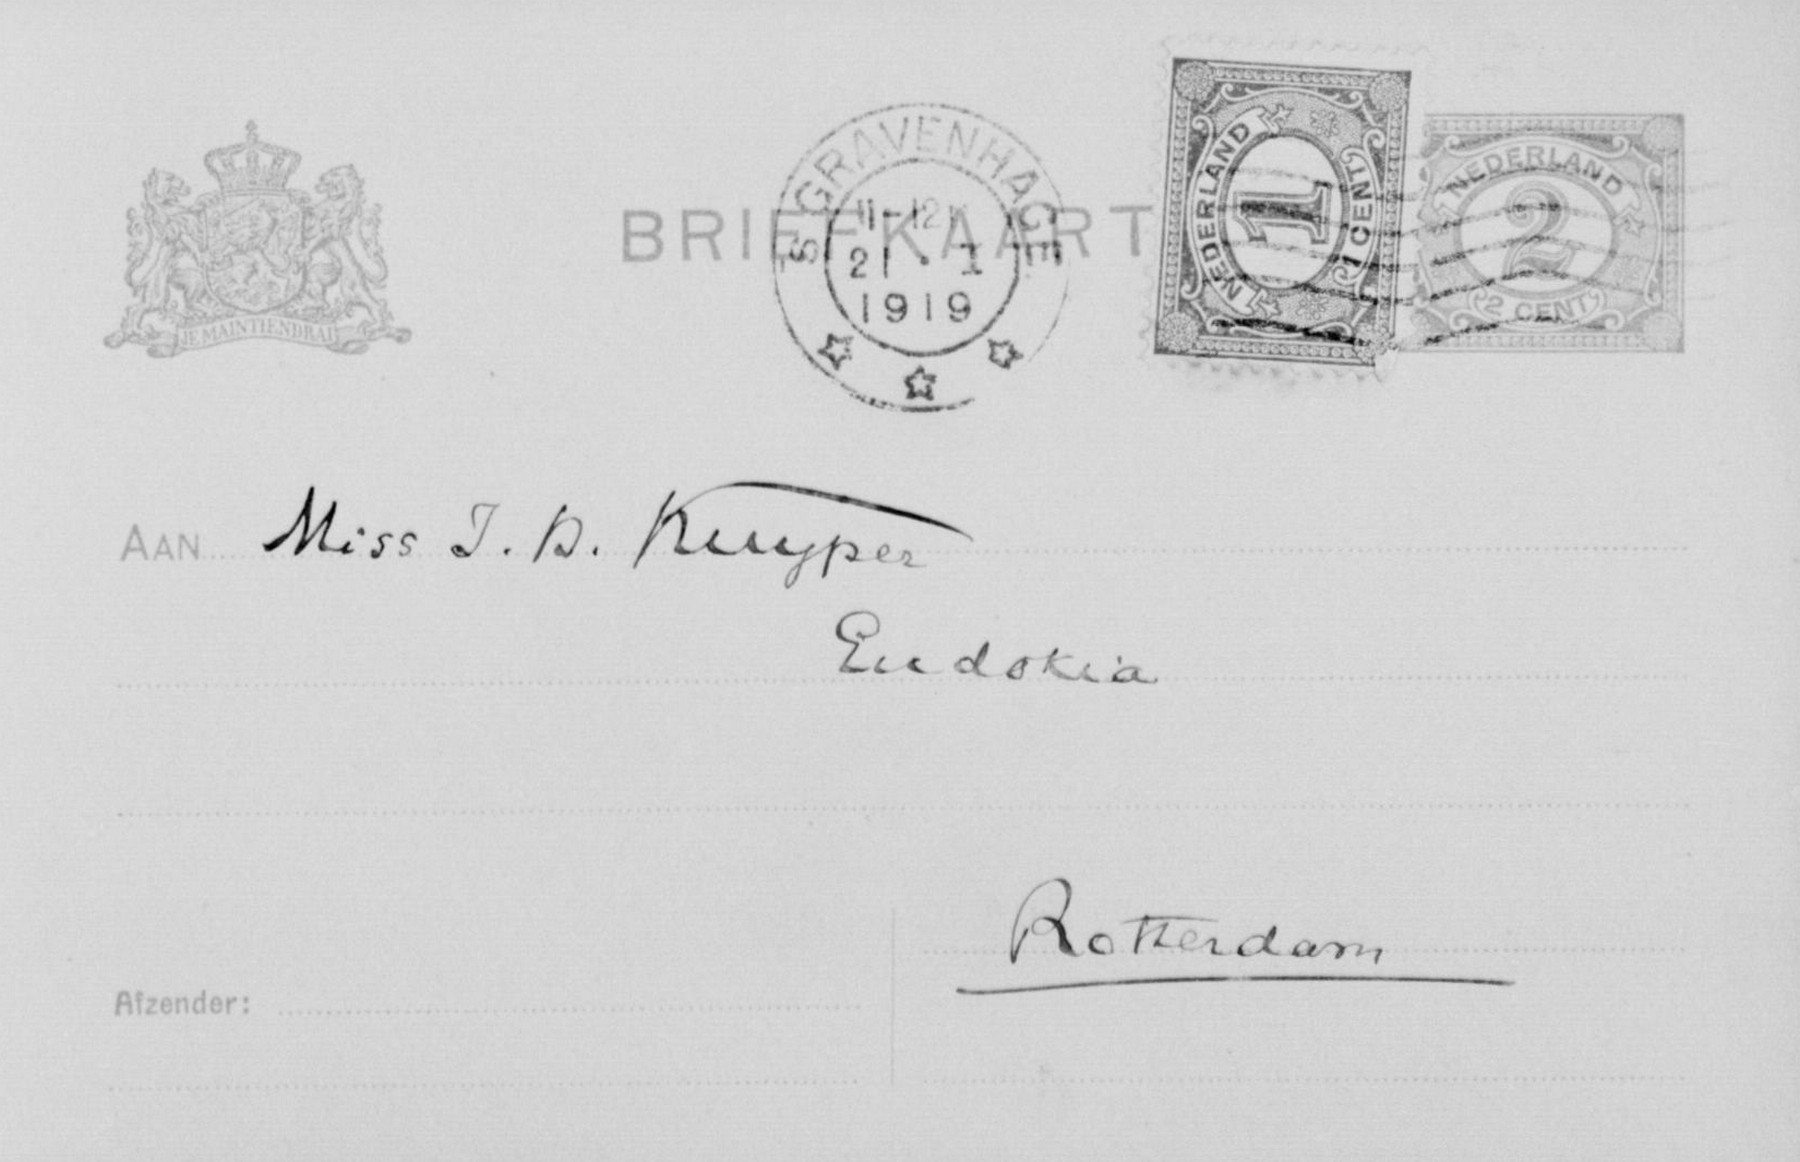 BRIEFKAART
'S GRAVENHAGE
11-12
21 · I
1919
NEDERLAND
NEDERLAND
1
1 CENT
NEDERLAND
2
2 CENT
JE MAINTIENDRAI
AAN Miss I. D. Kuyper
Eudokia
Rotterdam
Afzender: